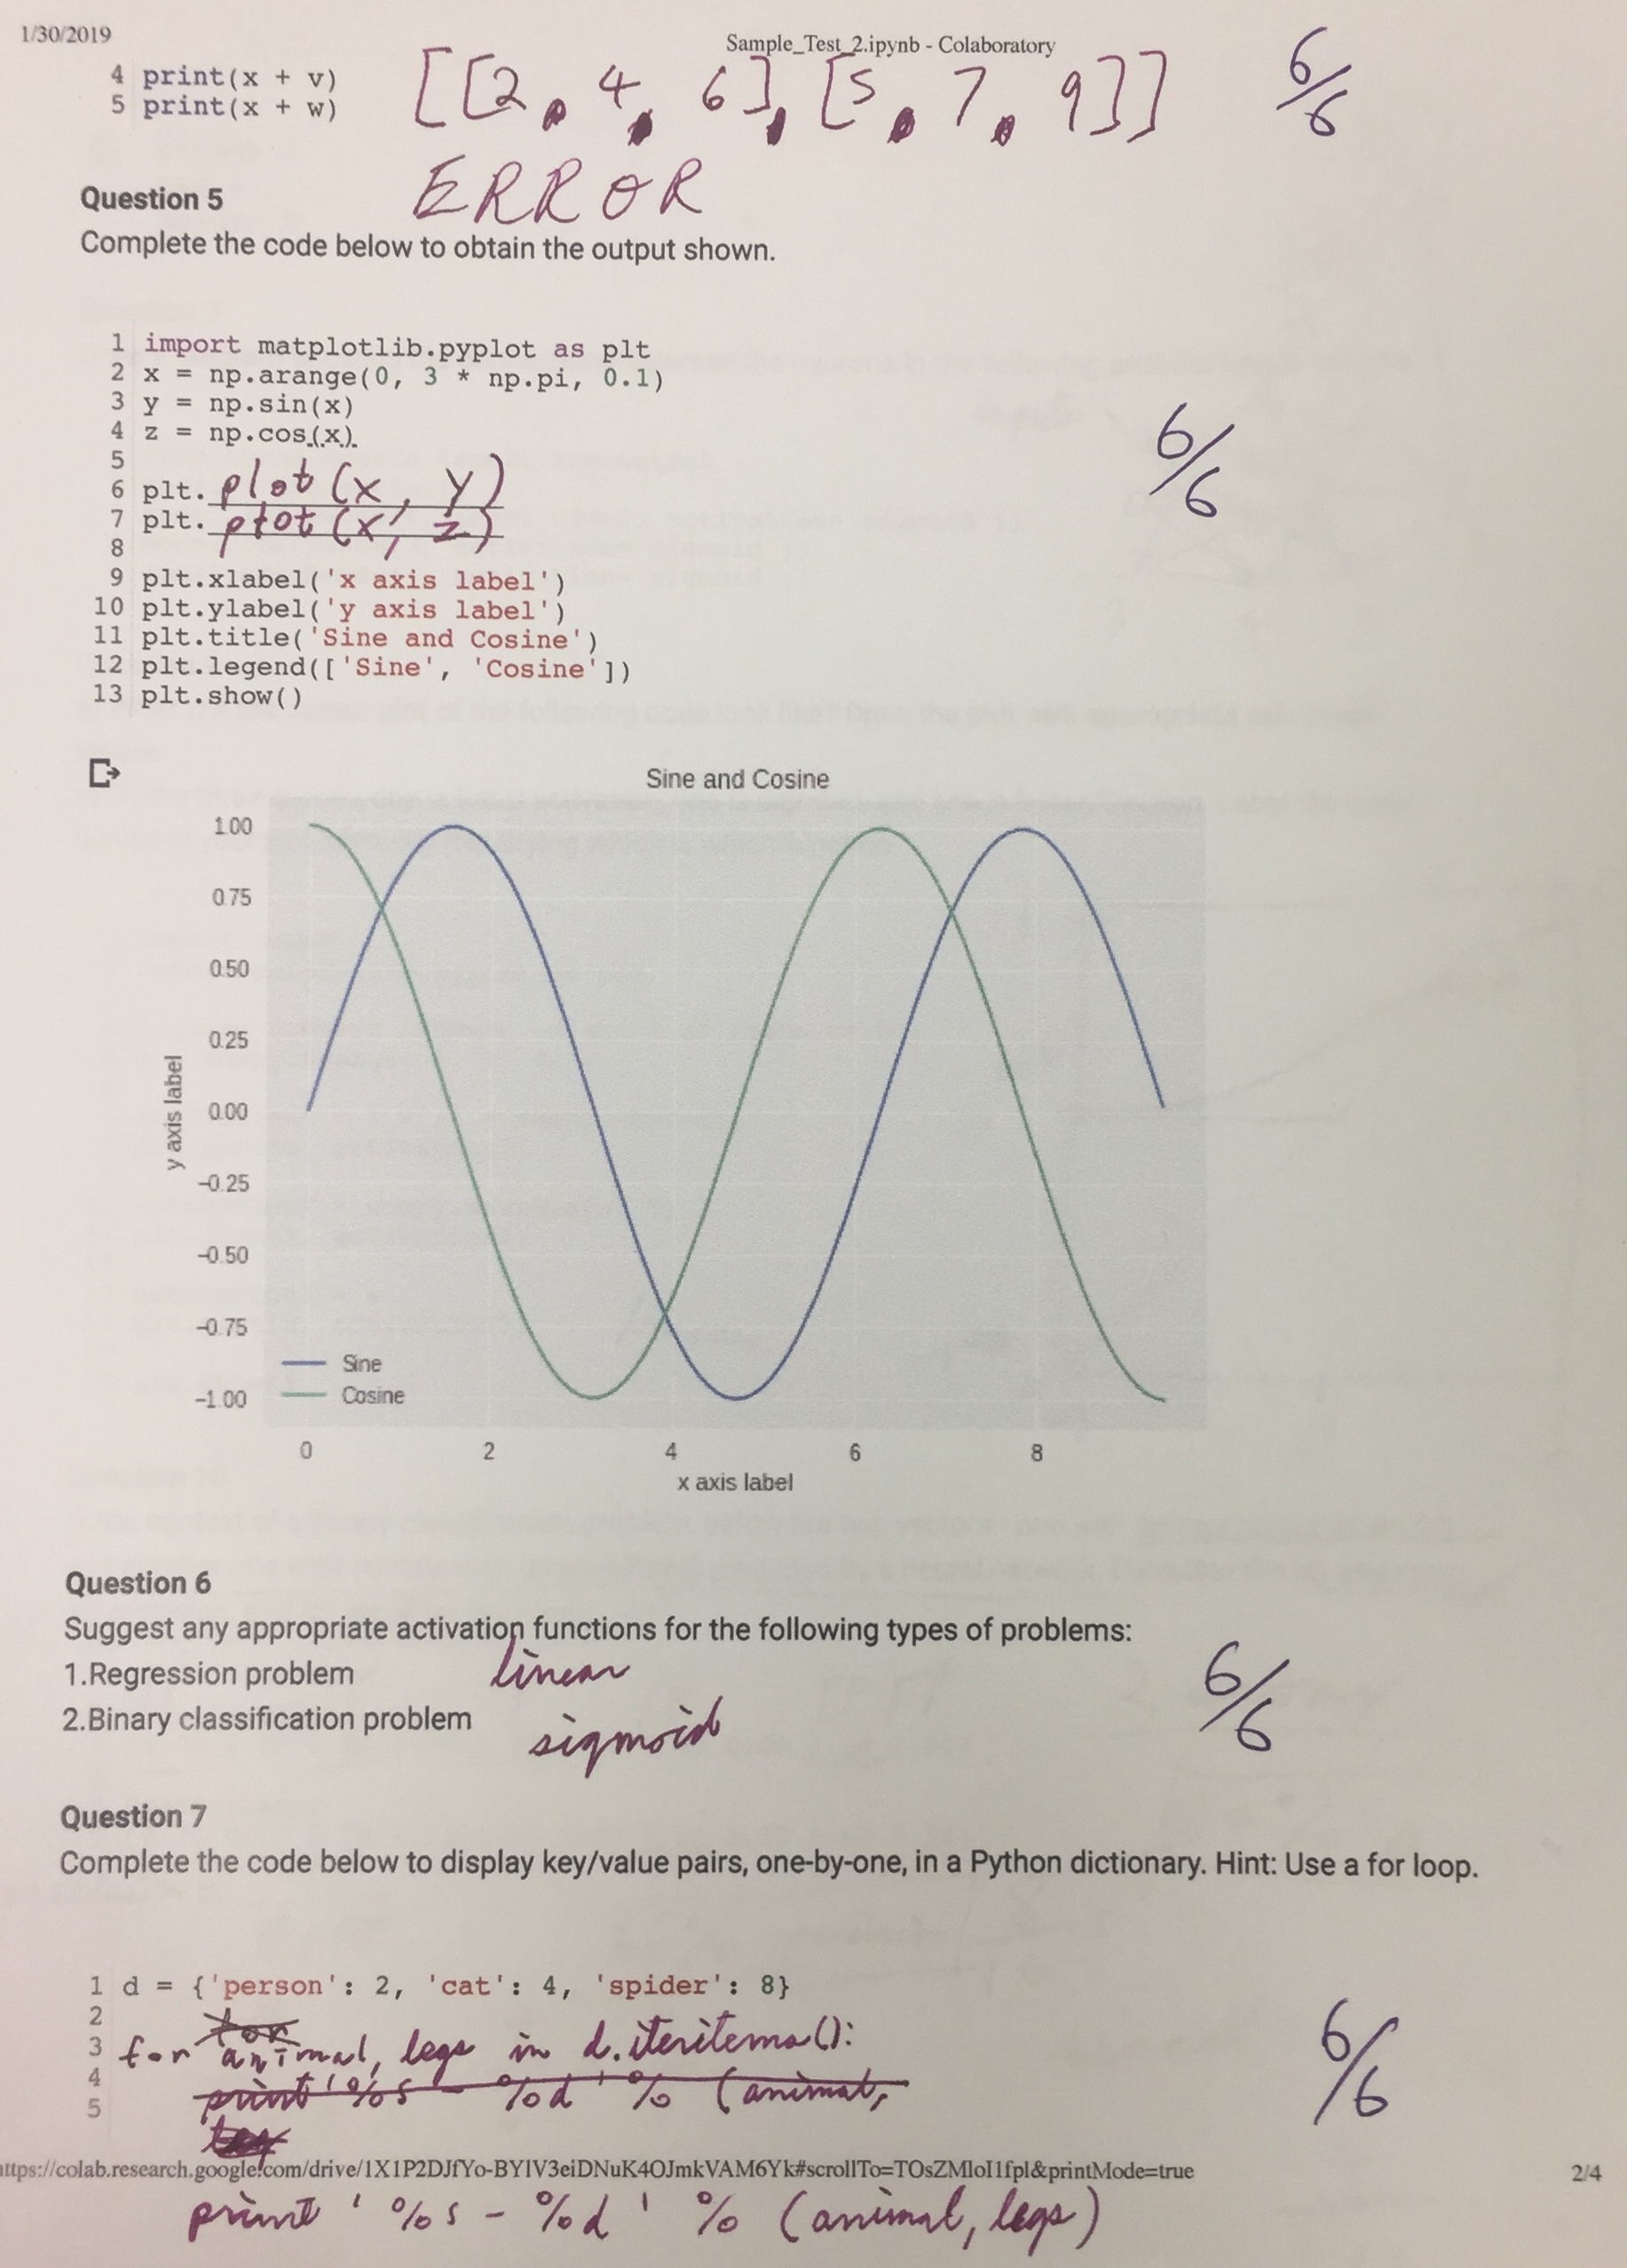 1/30/2019
Sample_Test_2.ipynb - Colaboratory
4 print(x + v) [[2, 4, 6], [5, 7, 9]] 6/6
5 print(x + w)
ERROR
Question 5
Complete the code below to obtain the output shown.
1 import matplotlib.pyplot as plt
2 x = np.arange(0, 3 * np.pi, 0.1)
3 y = np.sin(x)
4 z = np.cos(x)
5
6 plt. plot (x, y) 6/6
7 plt. plot (x, z)
8
9 plt.xlabel('x axis label')
10 plt.ylabel('y axis label')
11 plt.title('Sine and Cosine')
12 plt.legend(['Sine', 'Cosine'])
13 plt.show()
Sine and Cosine
1.00
0.75
0.50
0.25
0.00
-0.25
-0.50
-0.75
-1.00
y axis label
Sine
Cosine
0 2 4 6 8
x axis label
Question 6
Suggest any appropriate activation functions for the following types of problems:
1.Regression problem linear 6/6
2.Binary classification problem sigmoid
Question 7
Complete the code below to display key/value pairs, one-by-one, in a Python dictionary. Hint: Use a for loop.
1 d = {'person': 2, 'cat': 4, 'spider': 8}
2 for
3 for animal, legs in d.iteritems(): 6/6
4 print '%s - %d' % (animal,
5
ttps://colab.research.google.com/drive/1X1P2DJfYo-BYIV3eiDNuK4OJmkVAM6Yk#scrollTo=TOsZMloI1fpl&printMode=true 2/4
print '%s - %d' % (animal, legs)